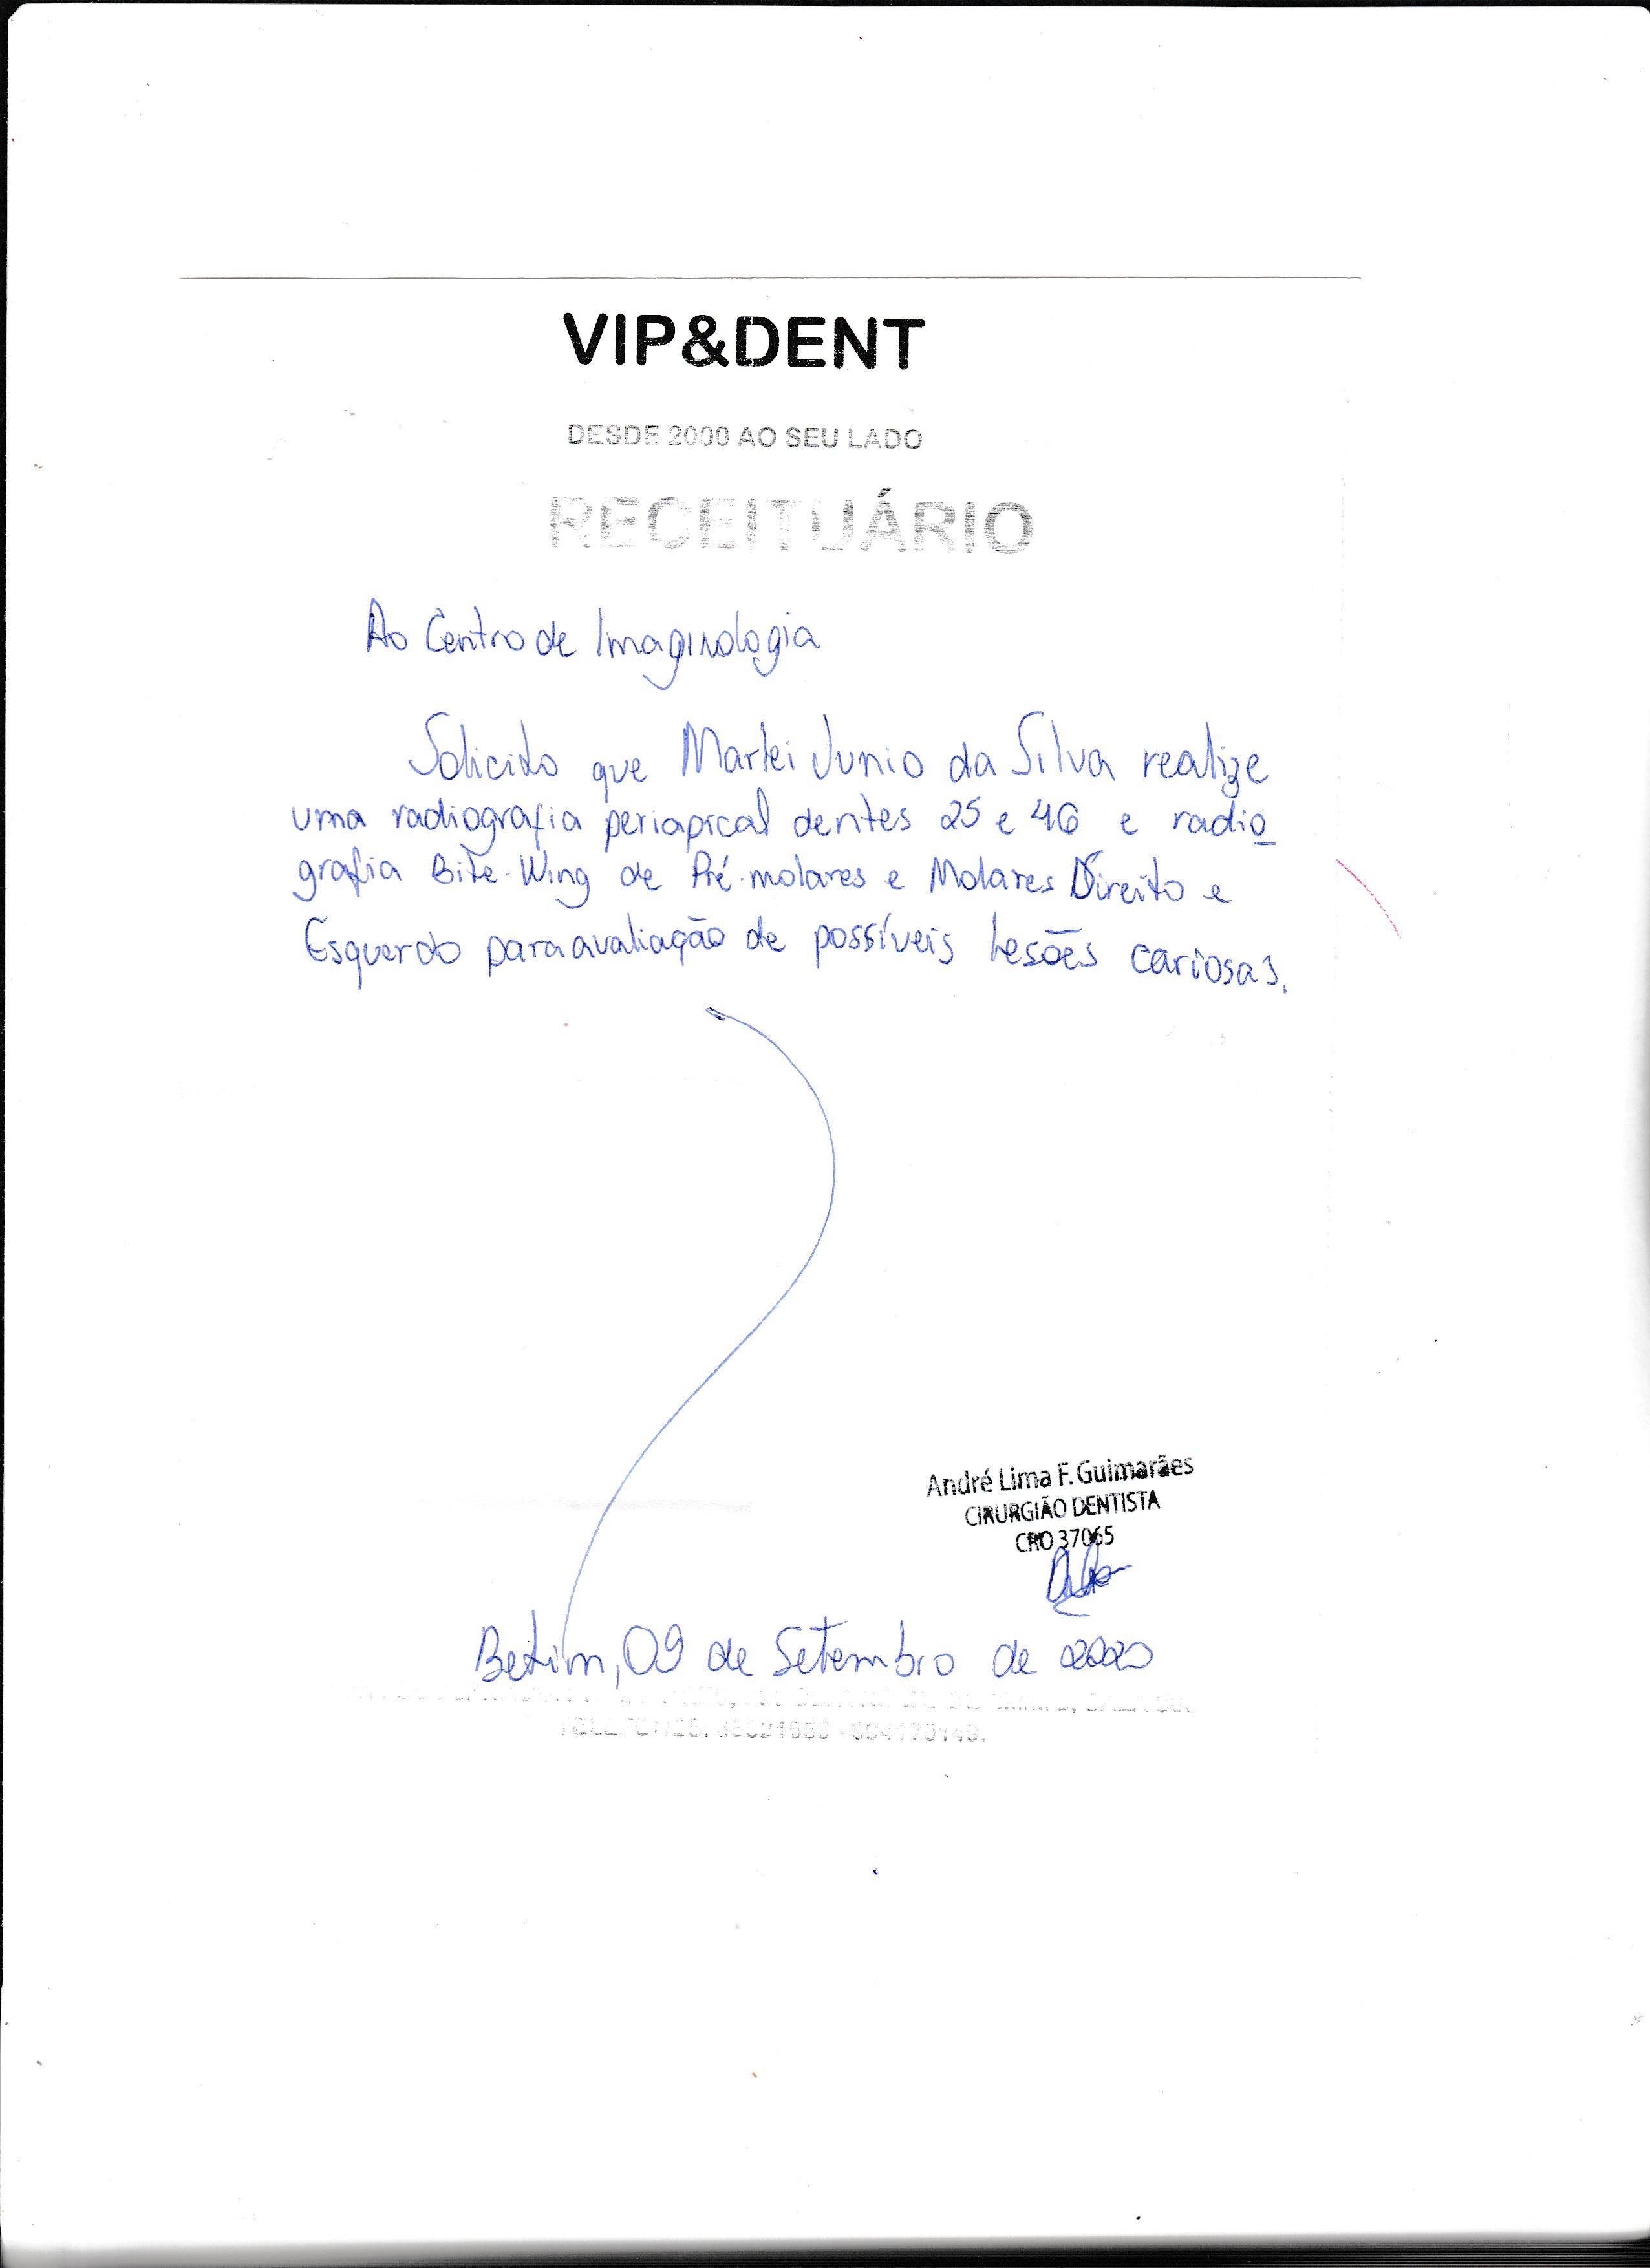 VIP&DENT
DESDE 2000 AO SEU LADO
RECEITUÁRIO
Ao Centro de Imaginologia
Solicito que Marlei Junio da Silva realize
uma radiografia periapical dentes 25 e 46 e radio
grafia Bite-Wing de Pré-molares e Molares Direito e
Esquerdo para avaliação de possíveis Lesões cariosas.
André Lima F. Guimarães
CIRURGIÃO DENTISTA
CRO 37065
Betim, 09 de Setembro de